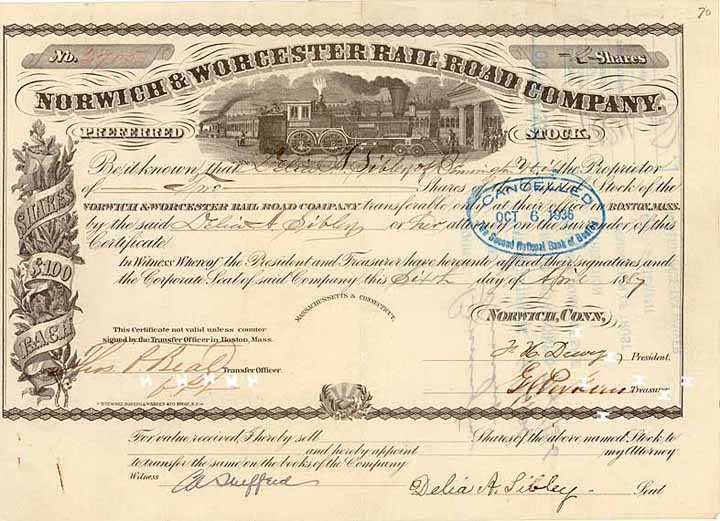 70
No. 2905
2 Shares
NORWICH & WORCESTER RAIL ROAD COMPANY.
PREFERRED STOCK.
Be it known that Delia A. Sibley of the Proprietor
of Two Shares Stock of the
NORWICH & WORCESTER RAIL ROAD COMPANY transferable only at their office BOSTON, MASS.
by the said Delia A. Sibley or her attorney on the surrender of this
Certificate.
CANCELLED
OCT 6 1936
The Second National Bank of Boston
In Witness Whereof the President and Treasurer have hereunto affixed their signatures and
the Corporate Seal of said Company this Sixth day of April 1887
SHARES
$100
EACH
MASSACHUSETTS & CONNECTICUT.
NORWICH, CONN.,
This Certificate not valid unless counter
signed by the Transfer Officer in Boston, Mass.
Thos. P. Beal Transfer Officer.
F. H. Dewey President.
Treasurer
For value received, I hereby sell Shares of the above named Stock to
and hereby appoint my Attorney
to transfer the same on the books of the Company
Witness
Delia A. Sibley Seal